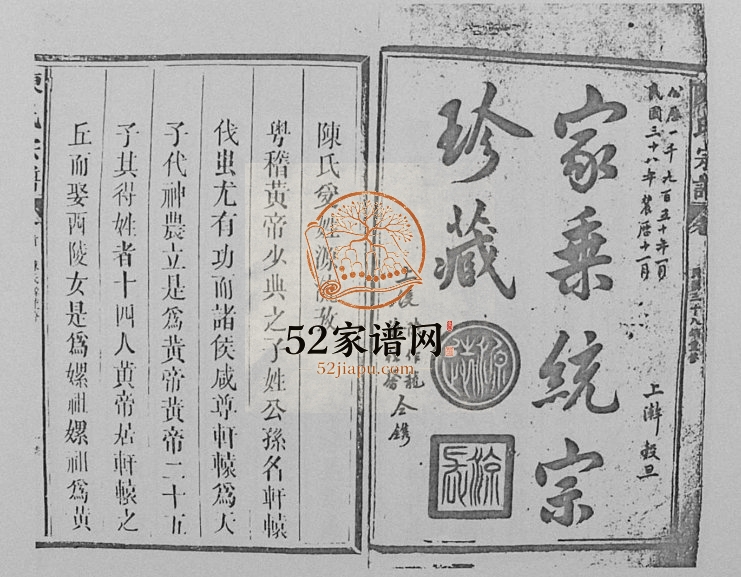 公曆一千九百五十年一月
民國三十八年農曆十一月
上澣 穀旦
家乘統宗
珍藏
源流
源長
仝鐫
陳氏受姓源流考
粤稽黃帝少典之子姓公孫名軒轅
伐蚩尤有功而諸侯咸尊軒轅為天
子代神農立是為黃帝黃帝二十五
子其得姓者十四人黃帝居軒轅之
丘而娶西陵女是為嫘祖嫘祖為黃
52家谱网
52jiapu.com